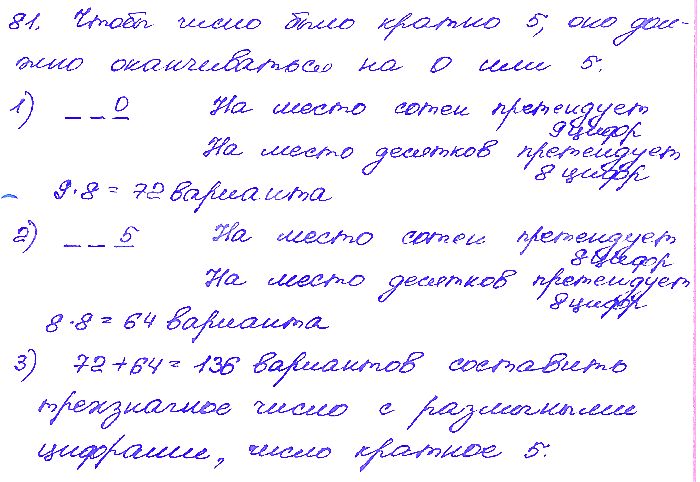 81. Чтобы число было кратно 5, оно дол-
жно оканчиваться на 0 или 5.
1) _ _ 0 На место сотен претендует
9 цифр
На место десятков претендует
8 цифр
9·8 = 72 варианта
2) _ _ 5 На место сотен претендует
8 цифр
На место десятков претендует
8 цифр
8·8 = 64 варианта
3) 72+64 = 136 вариантов составить
трехзначное число с различными
цифрами, число кратное 5.